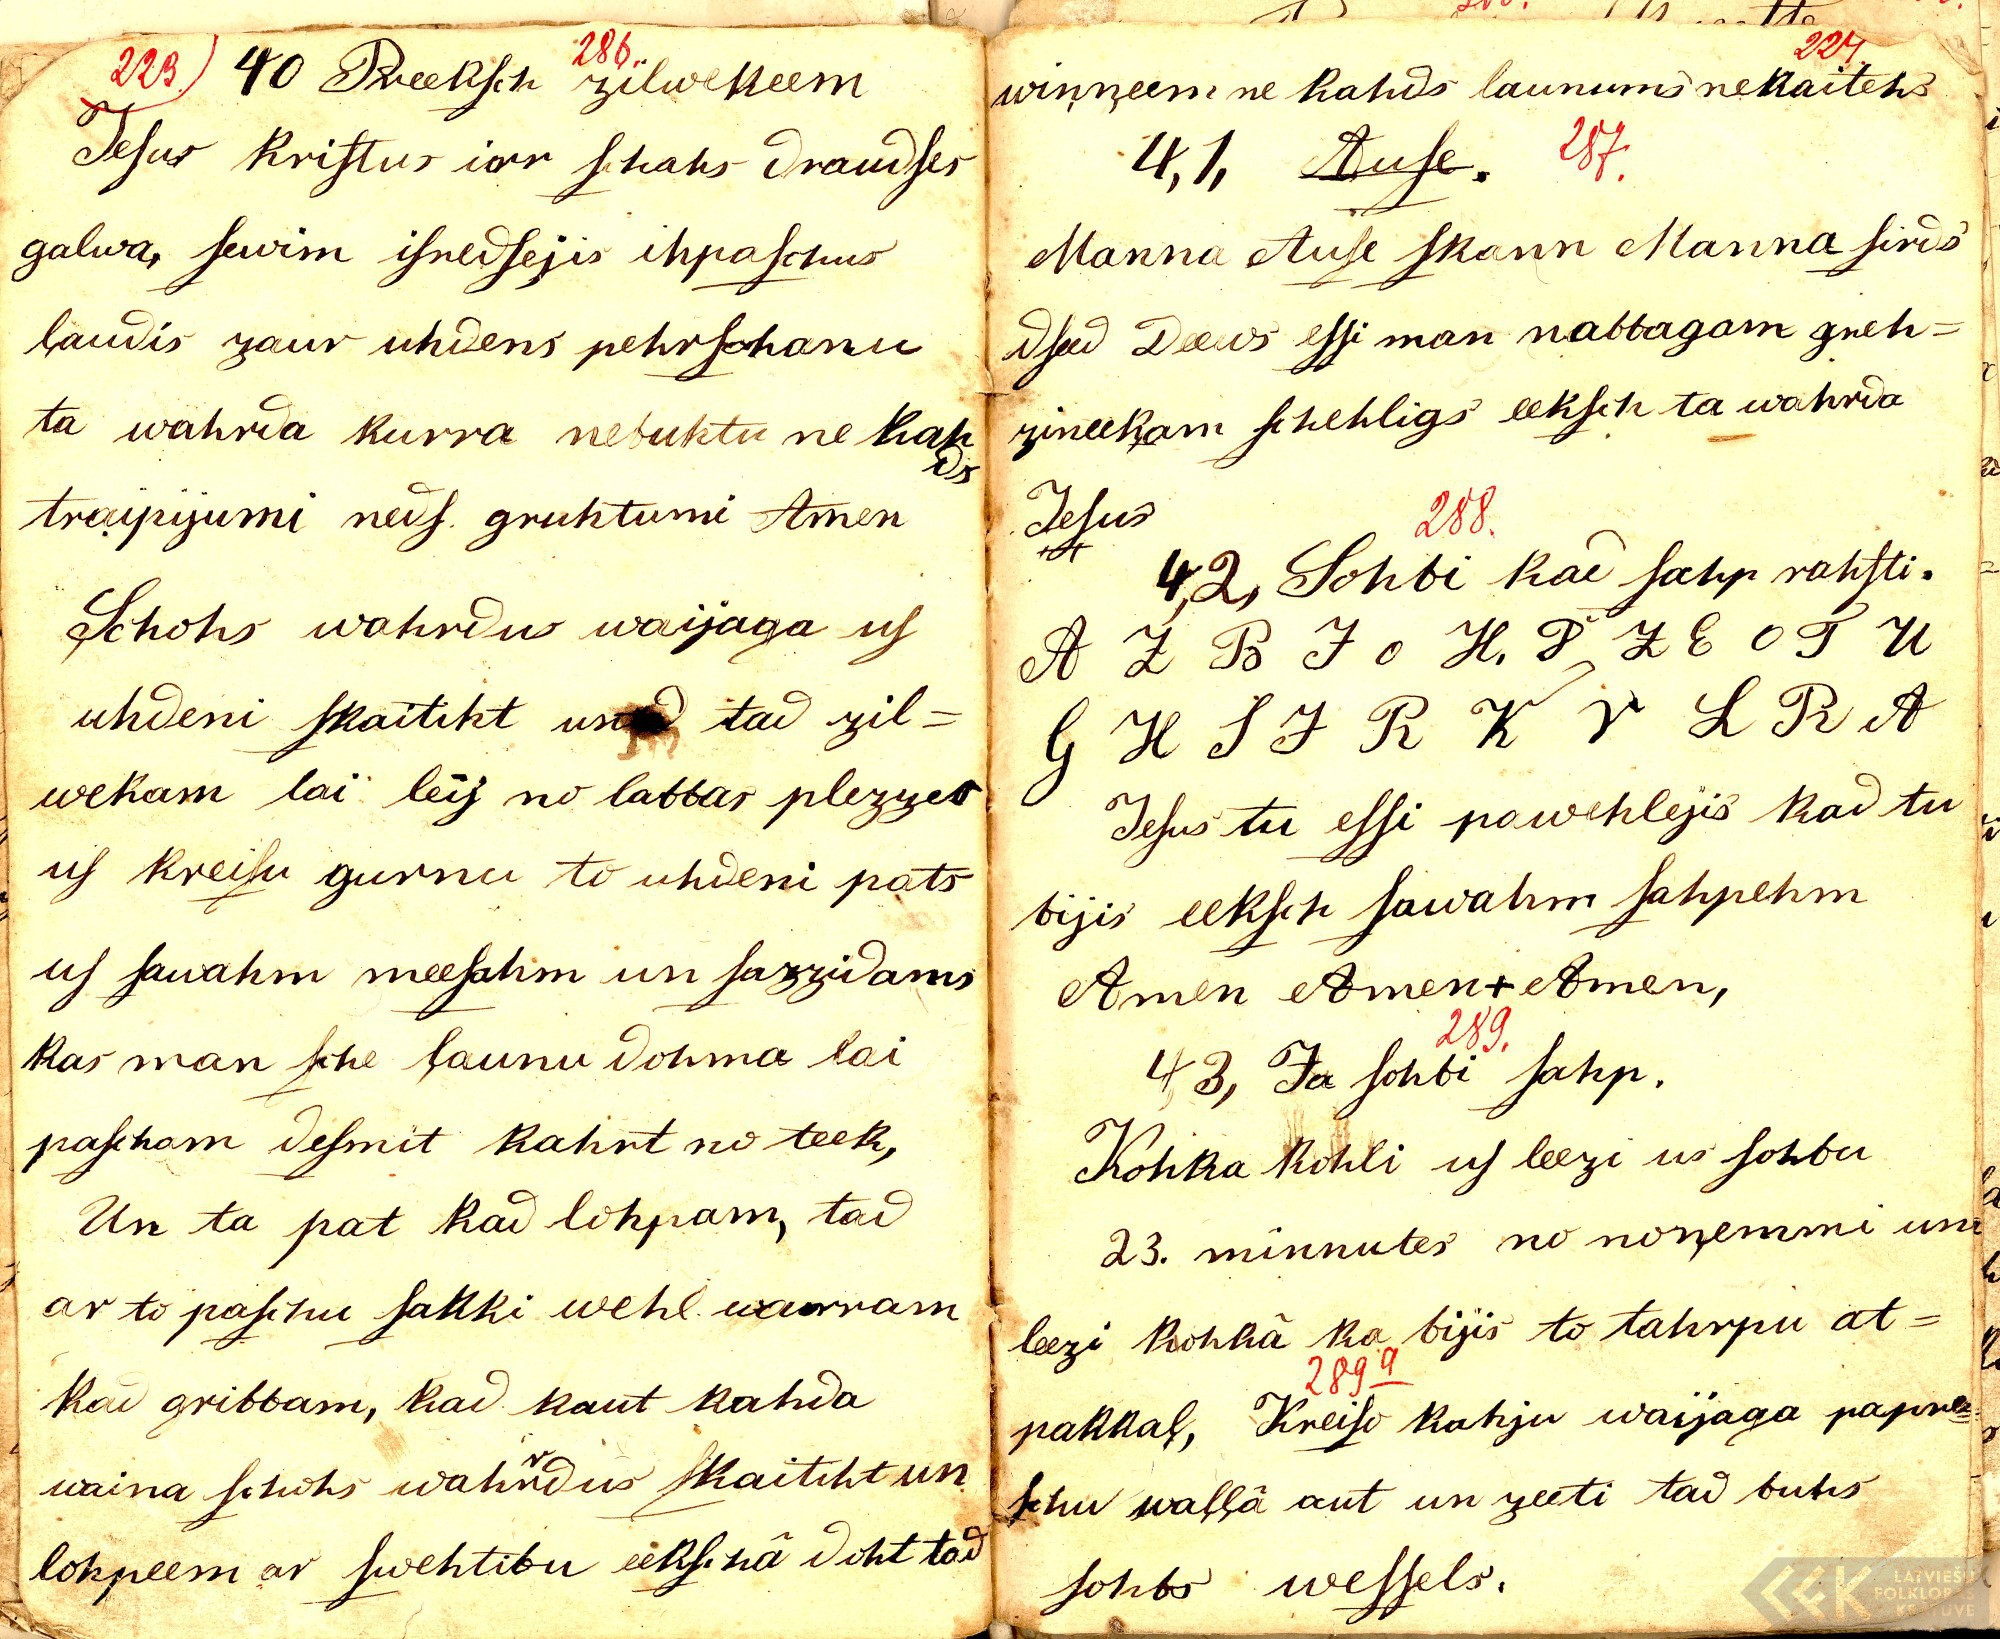 223) 40 Preeksch zilwekeem 286.
Jesus Kristus irr schahs draudses
galwa, sewim isredsejis ihpaschus
ļaudis zaur uhdens pehrschanu
ta wahrda kurra nebuhtu ne kah
ds
traipijumi neds. gruhtumi Amen
Schohs wahrdus waijaga us
uhdeni skaitiht un tad zil=
wekam lai leij no labbas plezzes
us kreisu gurnu to uhdeni pats
us sawahm meesahm un sazzidams
kas man sche ļaunu dohma lai
pascham desmit kahrt no teek,
Un ta pat kad lohpam, tad
ar to paschu sakki wehl warram
kad gribbam, kad kaut kahda
waina schohs wahrdus skaitiht un
lohpeem ar swehtibu eekschâ doht tad
224
winņeem ne kahds launums nekaitehs
4,1, Ause. 287.
Manna Ause skann Manna sirds
dseed Deews essi man nabbagam greh=
zineekam schehligs eeksch ta wahrda
Jesus
288.
4,2, Sohbi kad sahp rahsti.
A Z B J o H. P Z E O T U
G H S J R K V L R A
Jesus tu essi pawehlejis kad tu
bijis eeksch sawahm sahpehm
Amen Amen+Amen,
289.
4 3, Ja sohbi sahp.
Kohka kohli us leezi us sohbu
23. minnutes no noņemmi un
leezi kohkâ ka bijis to tahrpu at=
289 a
pakkaļ, Kreiso kahju waijaga papree=
schu waļļâ aut un zeeti tad buhs
sohbs wessels.
LATVIEŠU
FOLKLORAS
KRĀTUVE